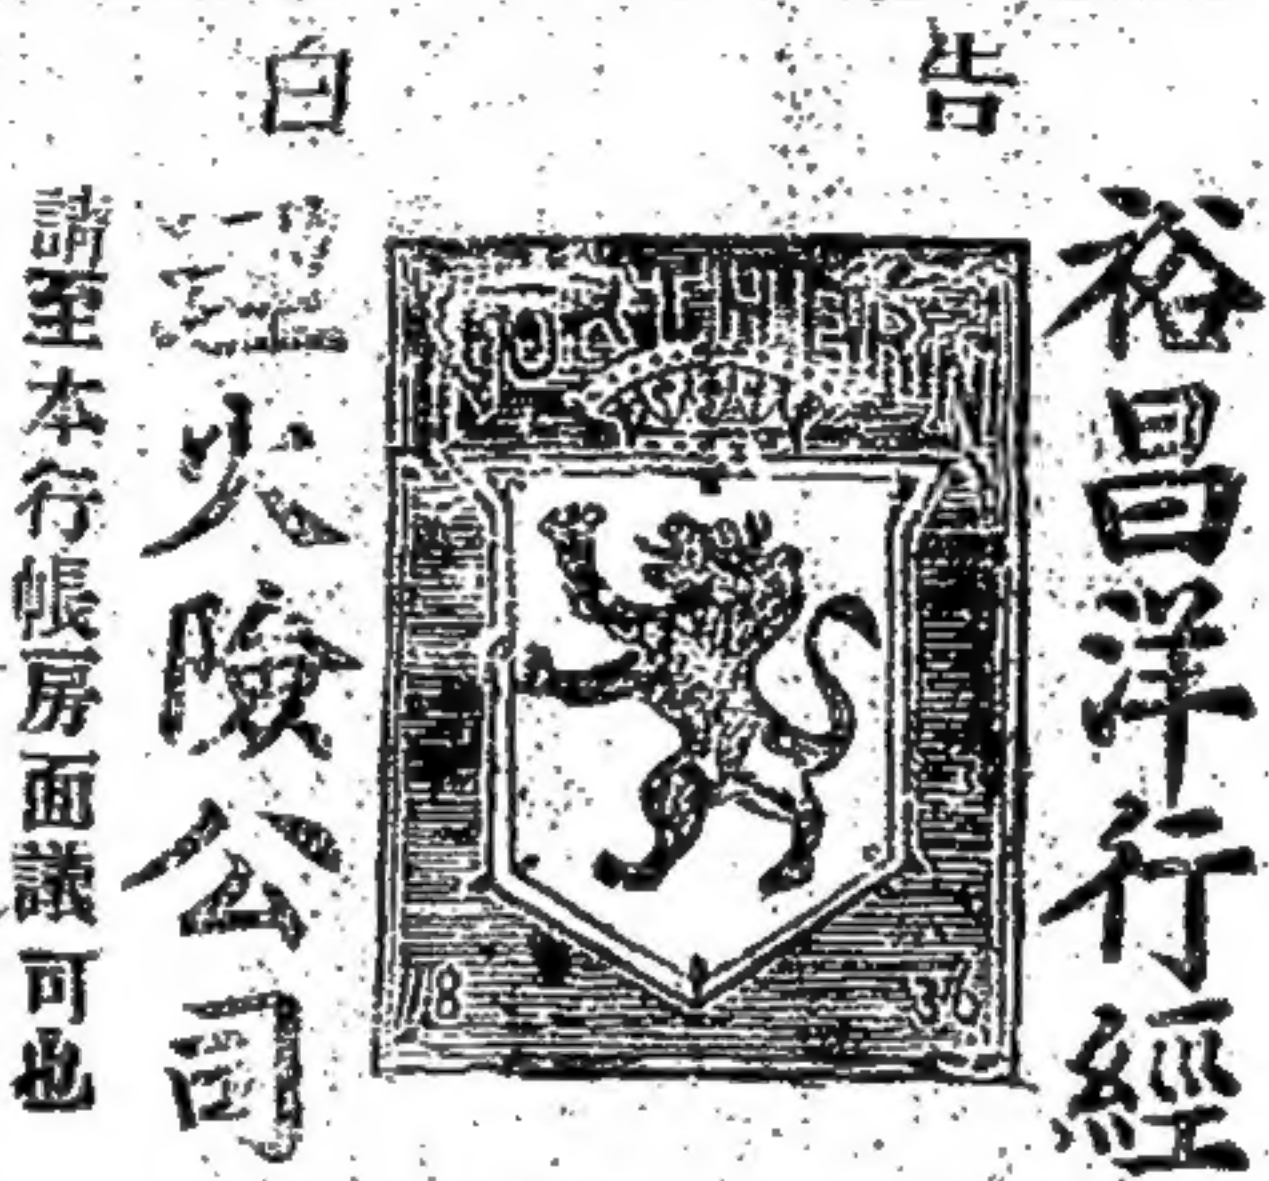 告白
裕昌洋行經
NORTHERN
18 36
理火險公司
請至本行帳房面議可也